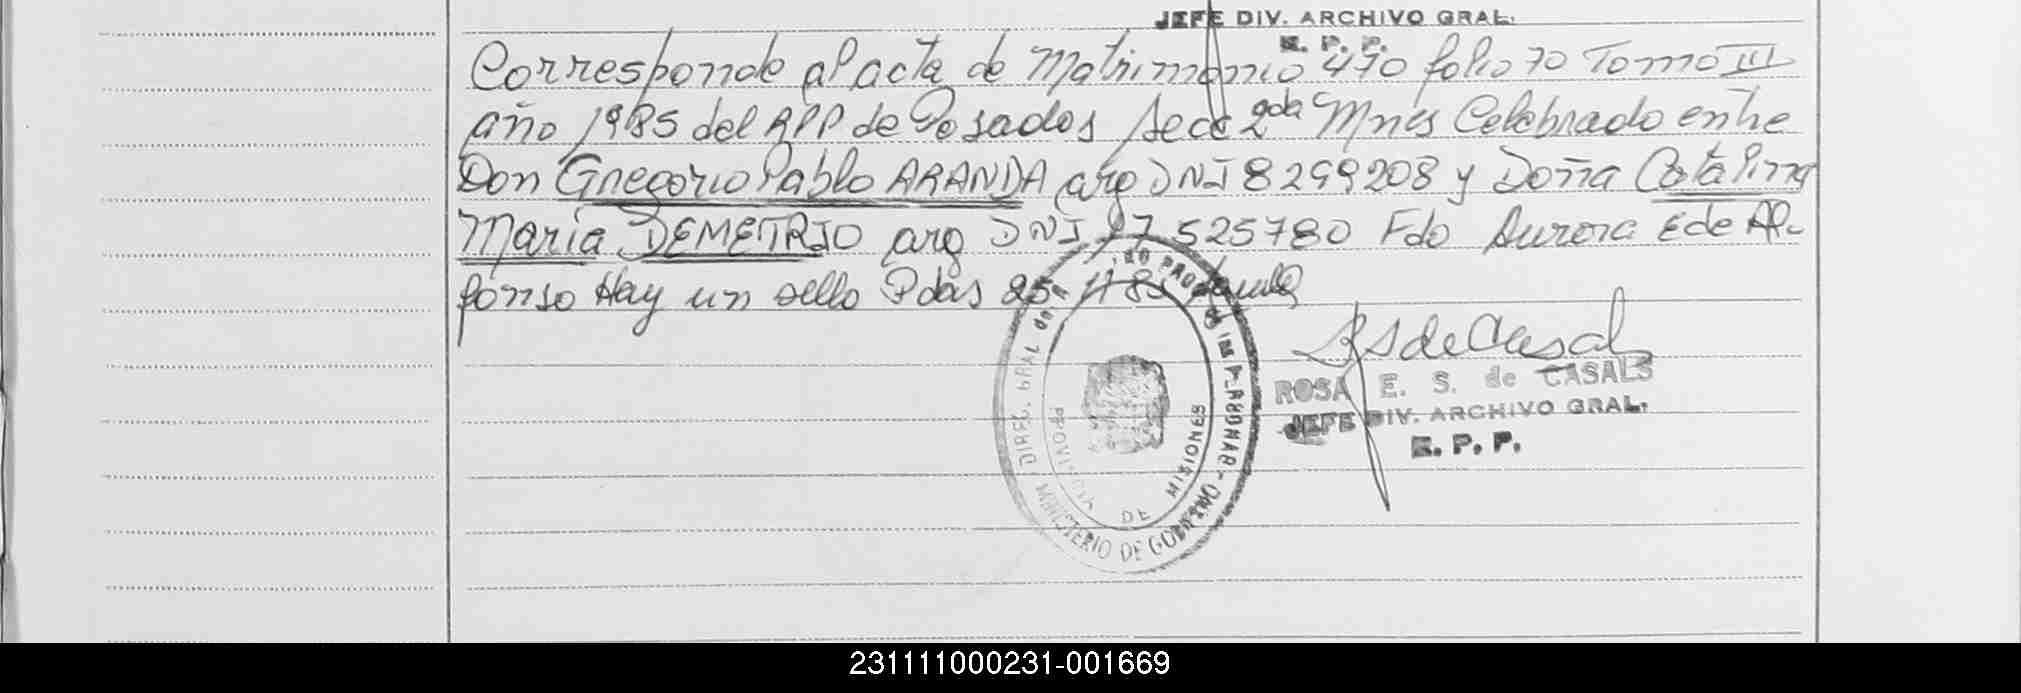 JEFE DIV. ARCHIVO GRAL.
E. P. P.
Corresponde al acta de Matrimonio 470 folio 70 Tomo III
año 1985 del RPP de Posadas Secc 2da Mnes Celebrado entre
Don Gregorio Pablo ARANDA arg DNI 8299208 y Doña Catalina
María DEMETRIO arg DNI 17525780 Fdo Aurora E de Al-
fonso Hay un sello Pdas 25
RS de Casal
ROSA E. S. de CASALS
JEFE DIV. ARCHIVO GRAL.
E. P. P.
DIREC. GRAL del PROV. de las PERSONAS - MINISTERIO DE GOBIERNO
PROVINCIA DE MISIONES
231111000231-001669